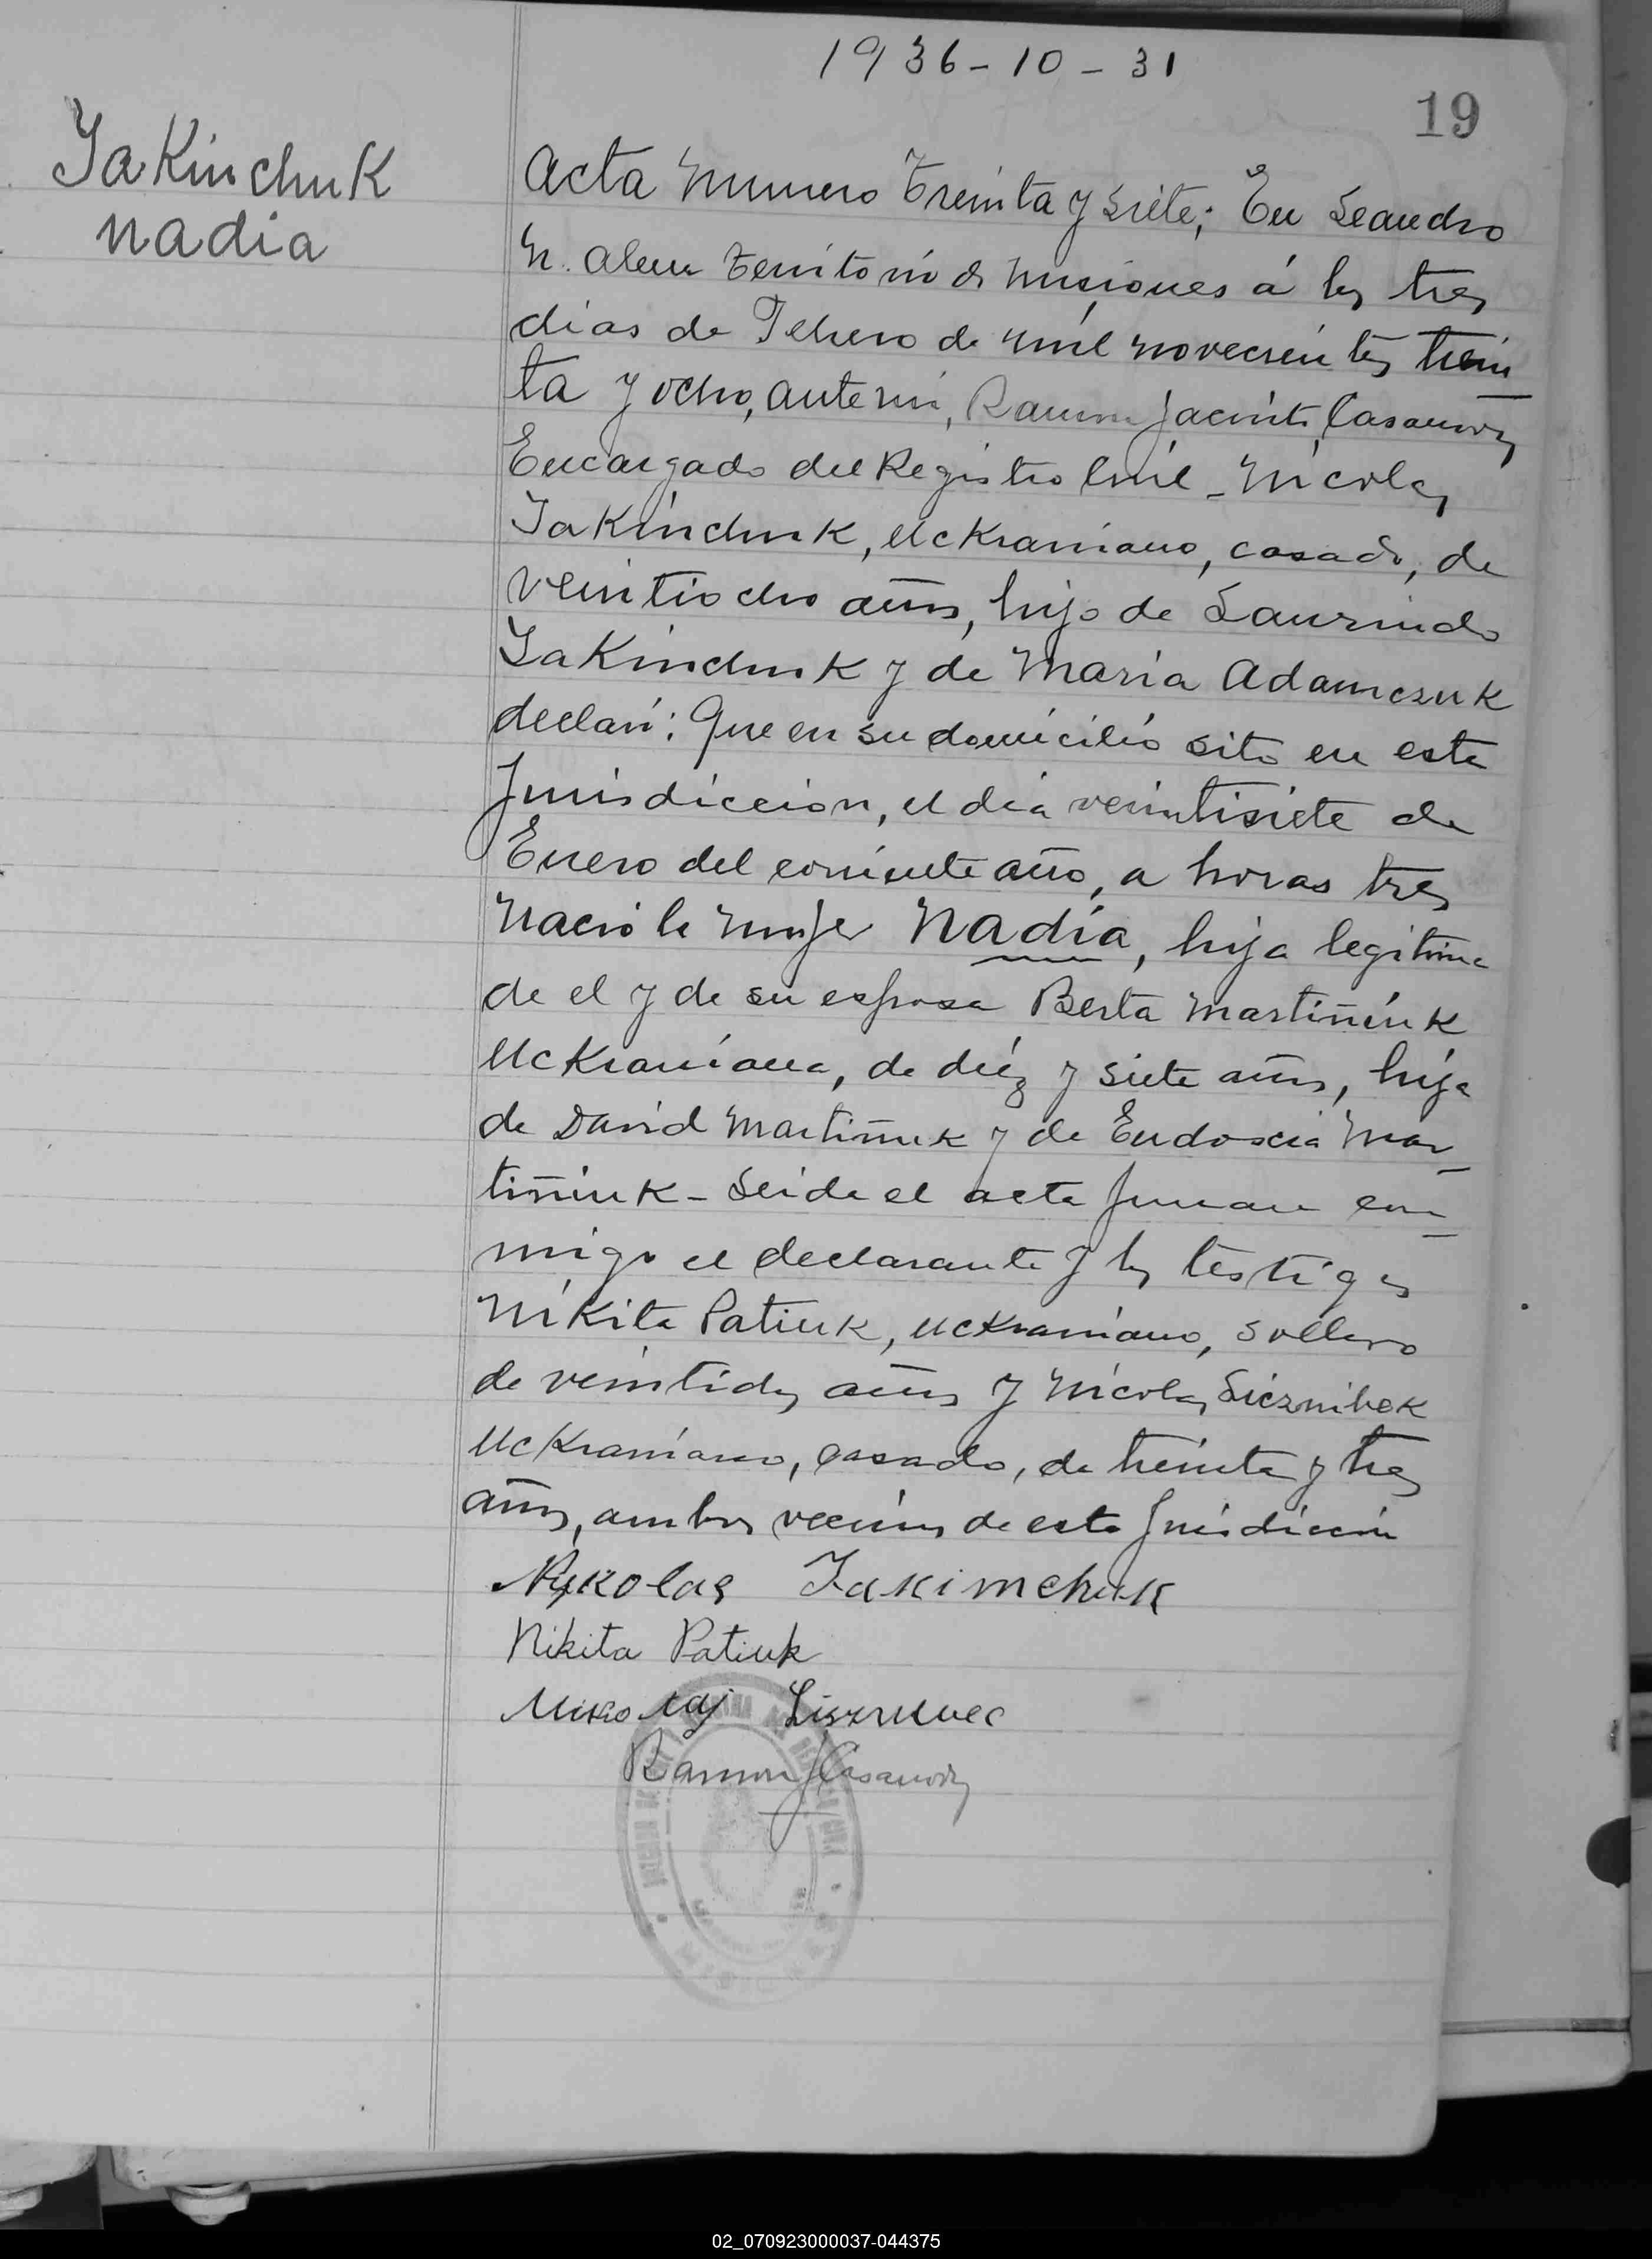 1936-10-31
19
Yakinchuk
Nadia
Acta Numero Treinta y siete; En Leandro
N. Alem Territorio de Misiones á los tres
dias de Febrero de mil novecientos trein
ta y ocho, ante mi, Ramon Jacinto Casanova
Encargado del Registro Civil - Nicolas
Yakinchuk, Uckraniano, casado, de
veintiocho años, hijo de Laurindo
Yakinchuk y de Maria Adamczuk
declaró: Que en su domicilio sito en esta
Jurisdiccion, el dia veintisiete de
Enero del corriente año, a horas tres
nació la mujer Nadia, hija legitima
de el y de su esposa Berta Martiñiuk
Uckraniana, de diéz y siete años, hija
de David Martiñuk y de Eudoscia Mar
tiñiuk - Leida el acta firman con
migo el declarante y los testigos
Nikita Patiuk, uckraniano, soltero
de veintidos años y Nicolas
Uckraniano, casado, de treinta y tres
años, ambos vecinos de esta Jurisdiccion
Nykolas Jakimchuk
Nikita Patiuk
Ramon J Casanova
02_070923000037-044375